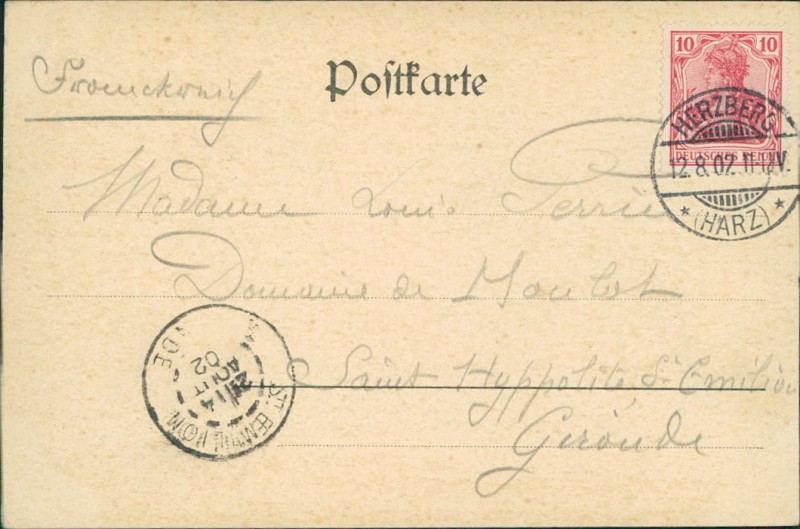 Franckreich
Postkarte
10 10
DEUTSCHES REICH
HERZBERG
12.8.02.
V.
* (HARZ) *
Madame Louis Perrié
Domaine de Moulot
Saint Hyppolite, St Emilion
Gironde
ST EMILION
14
AOUT
02